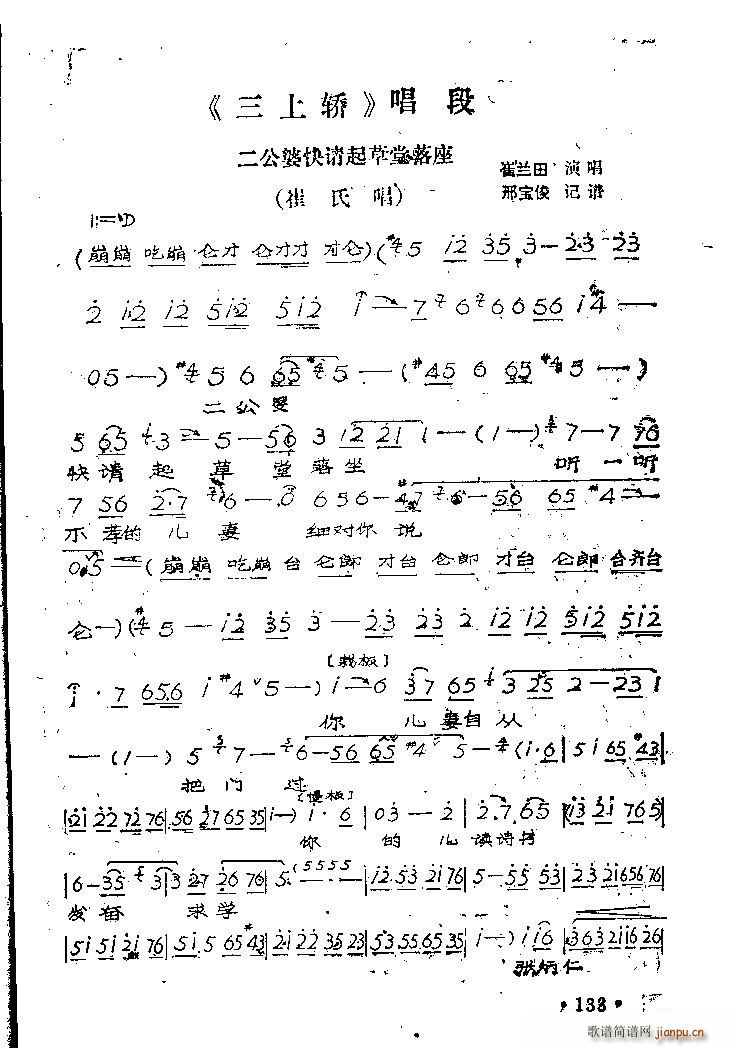 《三上轿》唱 段
二公婆快请起草堂落座
崔兰田 演唱
(崔 氏 唱)
邢宝俊 记谱
1=D
(崩崩 吃崩 仑才 仑才才 才仑)(#4 5 i2 35 3— 23 23
2 i2 i2 5i2 5i2 i 7 6 6656 i#4 —
05—) #4 5 6 65 #4 5 —(#45 6 65 #4 5 —)
二公婆
5 65 3 5—56 3 12 21 1—(1—) 7—7 76
快请 起 草 堂 落坐 听一听
7 56 2·7 6—·0 656—47 6—56 65 #4—
不孝的 儿妻 细对你 说
05 —(崩崩 吃崩 台 仑郎 才台 仑郎 才台 仑郎 台齐台
仑—)(#4 5—i2 35 3—23 23 2 i2 i2 5i2 5i2
i·7 656 i #4 5—) i 6 37 65 3 25 2—23 1
你 儿妻自从
—(1—) 5 7— 6—56 65 #4 5—(i·6|5i 65 #43|
把门 过
[慢板]
|2i 22 72 76|56 27 65 35|i—) i·6|03—2|2·7 65|i3 2i 76 5|
你 的 儿读诗书
|6—35 3|3 27 26 76|5·(5555|i2 53 2i 76|5—55 53|23 2i656 76|
发奋 求学
|5i 5i 2i 76|5i 5 65 #43|2i 22 35 23|53 55 65 35|i—) i i6|3632i26|
张炳仁
·133·
歌谱简谱网
jianpu.cn